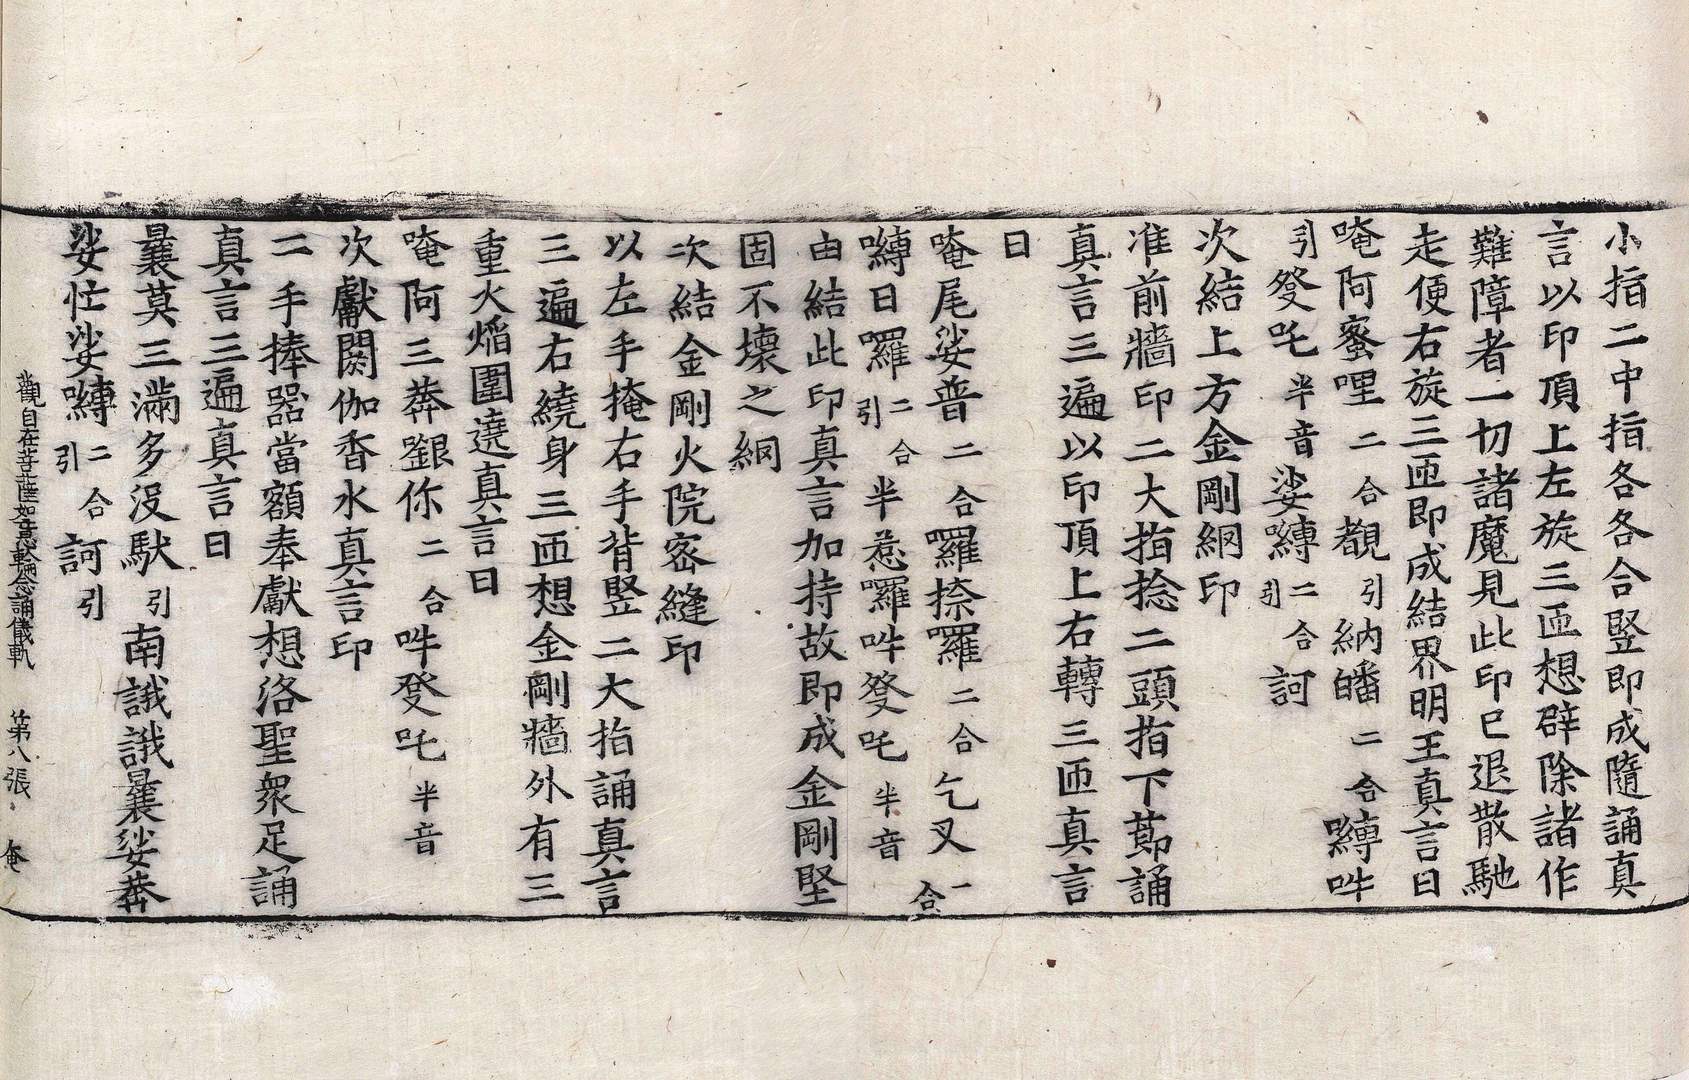 小指二中指各各合竪即成隨誦真
言以印頂上左旋三匝想辟除諸作
難障者一切諸魔見此印已退散馳
走便右旋三匝即成結界明王真言曰
唵阿蜜哩二合覩引納皤二合嚩吽
引發吒半音娑嚩二合引訶
次結上方金剛網印
准前牆印二大指捻二頭指下節誦
真言三遍以印頂上右轉三匝真言
曰
唵尾娑普二合羅捺羅二合乞叉二合
嚩日囉二合引半惹囉吽發吒半音
由結此印真言加持故即成金剛堅
固不壞之網
次結金剛火院密縫印
以左手掩右手背竪二大指誦真言
三遍右繞身三匝想金剛牆外有三
重火焰圍遶真言曰
唵阿三莽銀你二合吽發吒半音
次獻閼伽香水真言印
二手捧器當額奉獻想洛聖衆足誦
真言三遍真言曰
曩莫三滿多没馱引南誐誐曩娑莽
娑忙娑嚩二合引訶引
觀自在菩薩如意輪念誦儀軌　第八張　奄